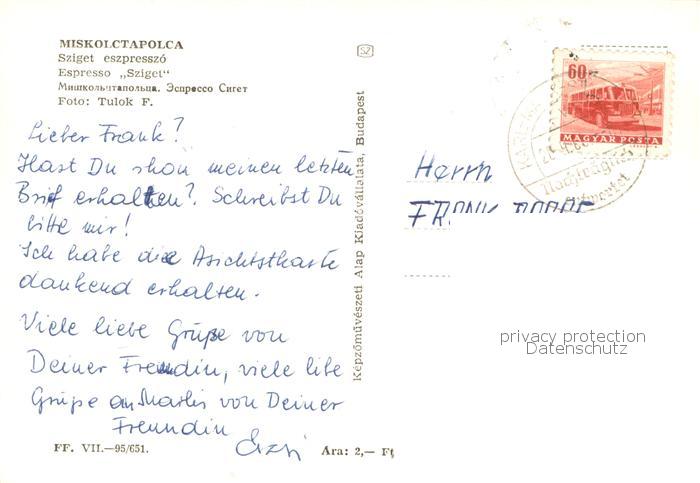 MISKOLCTAPOLCA
Sziget eszpresszó
Espresso „Sziget“
Мишкольцтапольца. Эспрессо Сигет
Foto: Tulok F.
Lieber Frank?
Hast Du shon meinen letzten
Brief erhalten? Schreibst Du
bitte mir!
Ich habe die Asichtstkarte
dankend erhalten.
Viele liebe Grüpe von
Deiner Freundin, viele libe
Grüpe an Marlis von Deiner
Freundin
Erzsi
FF. VII.—95/651.
Ára: 2,— Ft
SZ
Képzőművészeti Alap Kiadóvállalata, Budapest
60
MAGYAR POSTA
Nachträglich
entwertet
Herrn
FRANK
privacy protection
Datenschutz